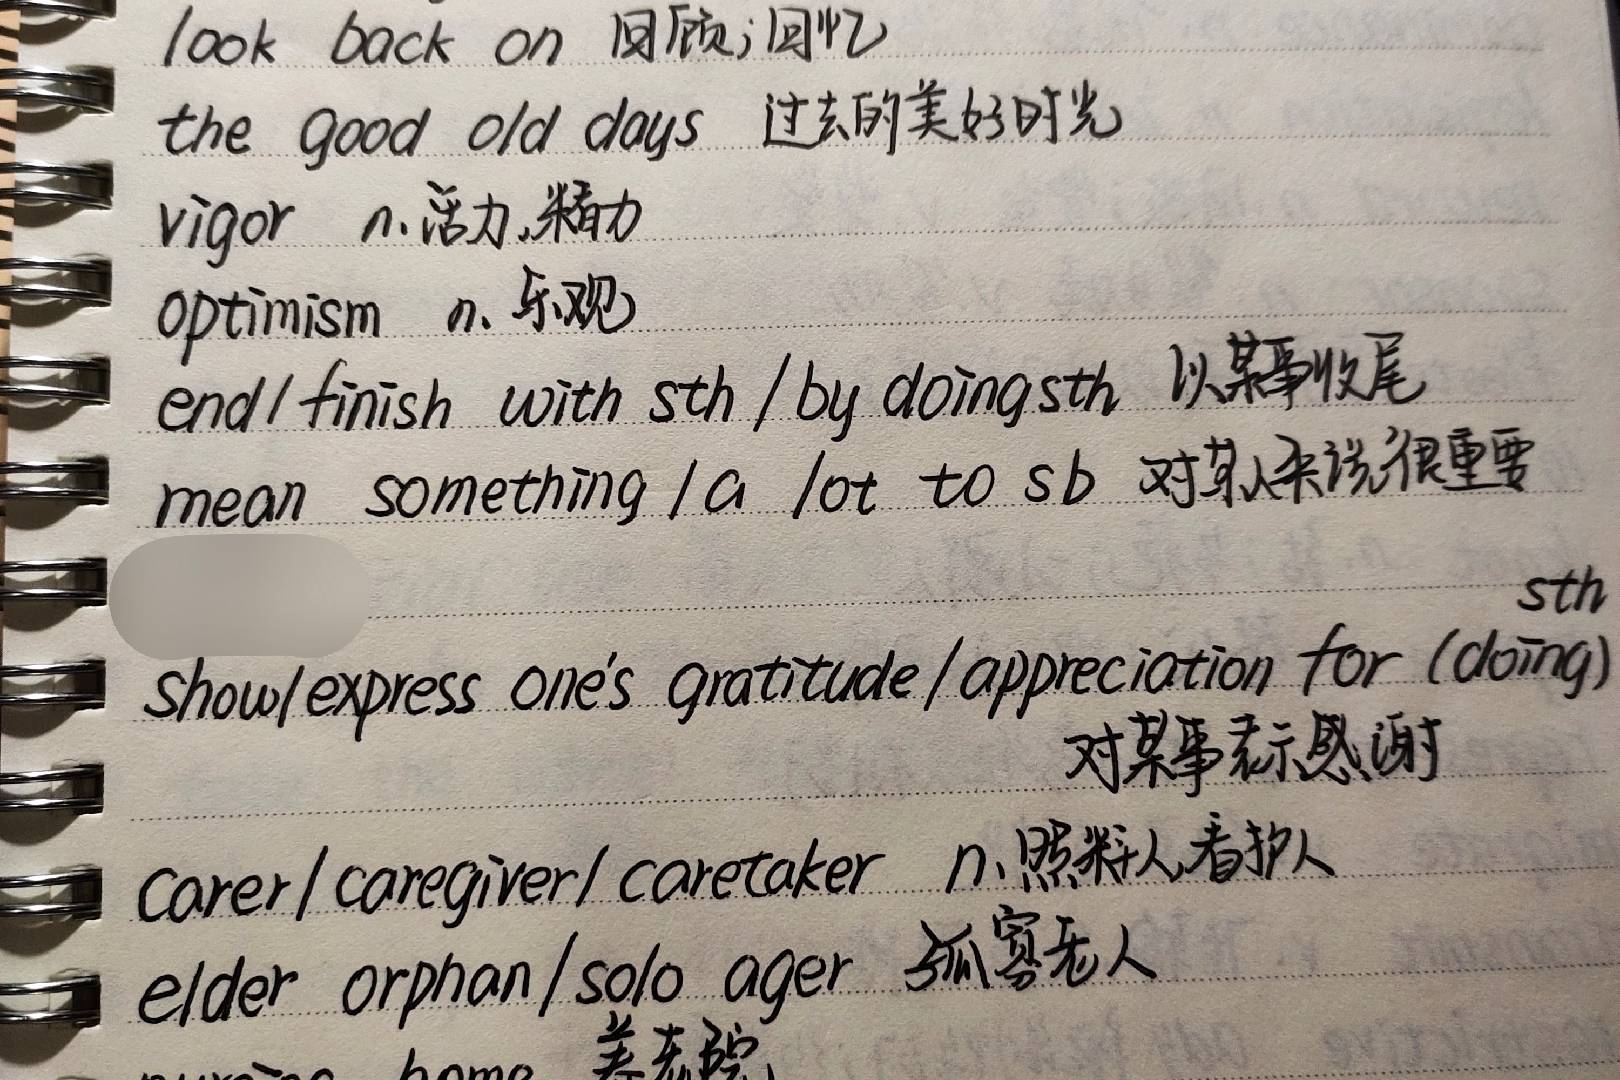 look back on 回顾;回忆
the good old days 过去的美好时光
vigor n.活力,精力
optimism n. 乐观
end/finish with sth/by doing sth 以某事收尾
mean something/a lot to sb 对某人来说很重要
sth
show/express one's gratitude/appreciation for (doing)
对某事表示感谢
carer/caregiver/caretaker n.照料人,看护人
elder orphan/solo ager 孤寡老人
nursing home 养老院